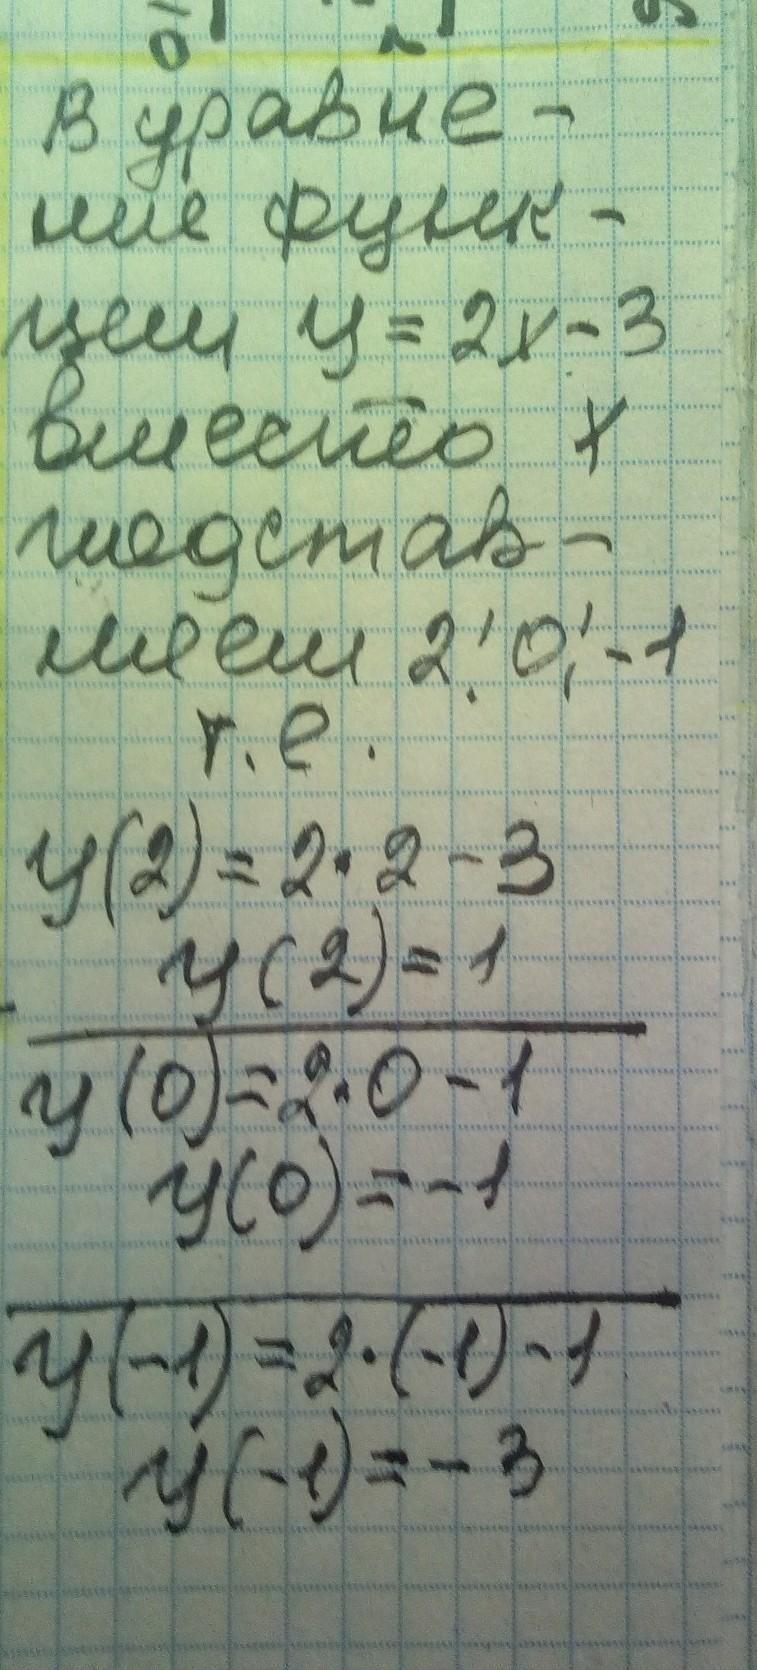 В уравне-
ние функ-
ции y = 2x - 3
вместо x
подстав-
ляем 2; 0; -1
т.е.
y(2) = 2 · 2 - 3
y(2) = 1
y(0) = 2 · 0 - 1
y(0) = -1
y(-1) = 2 · (-1) - 1
y(-1) = -3